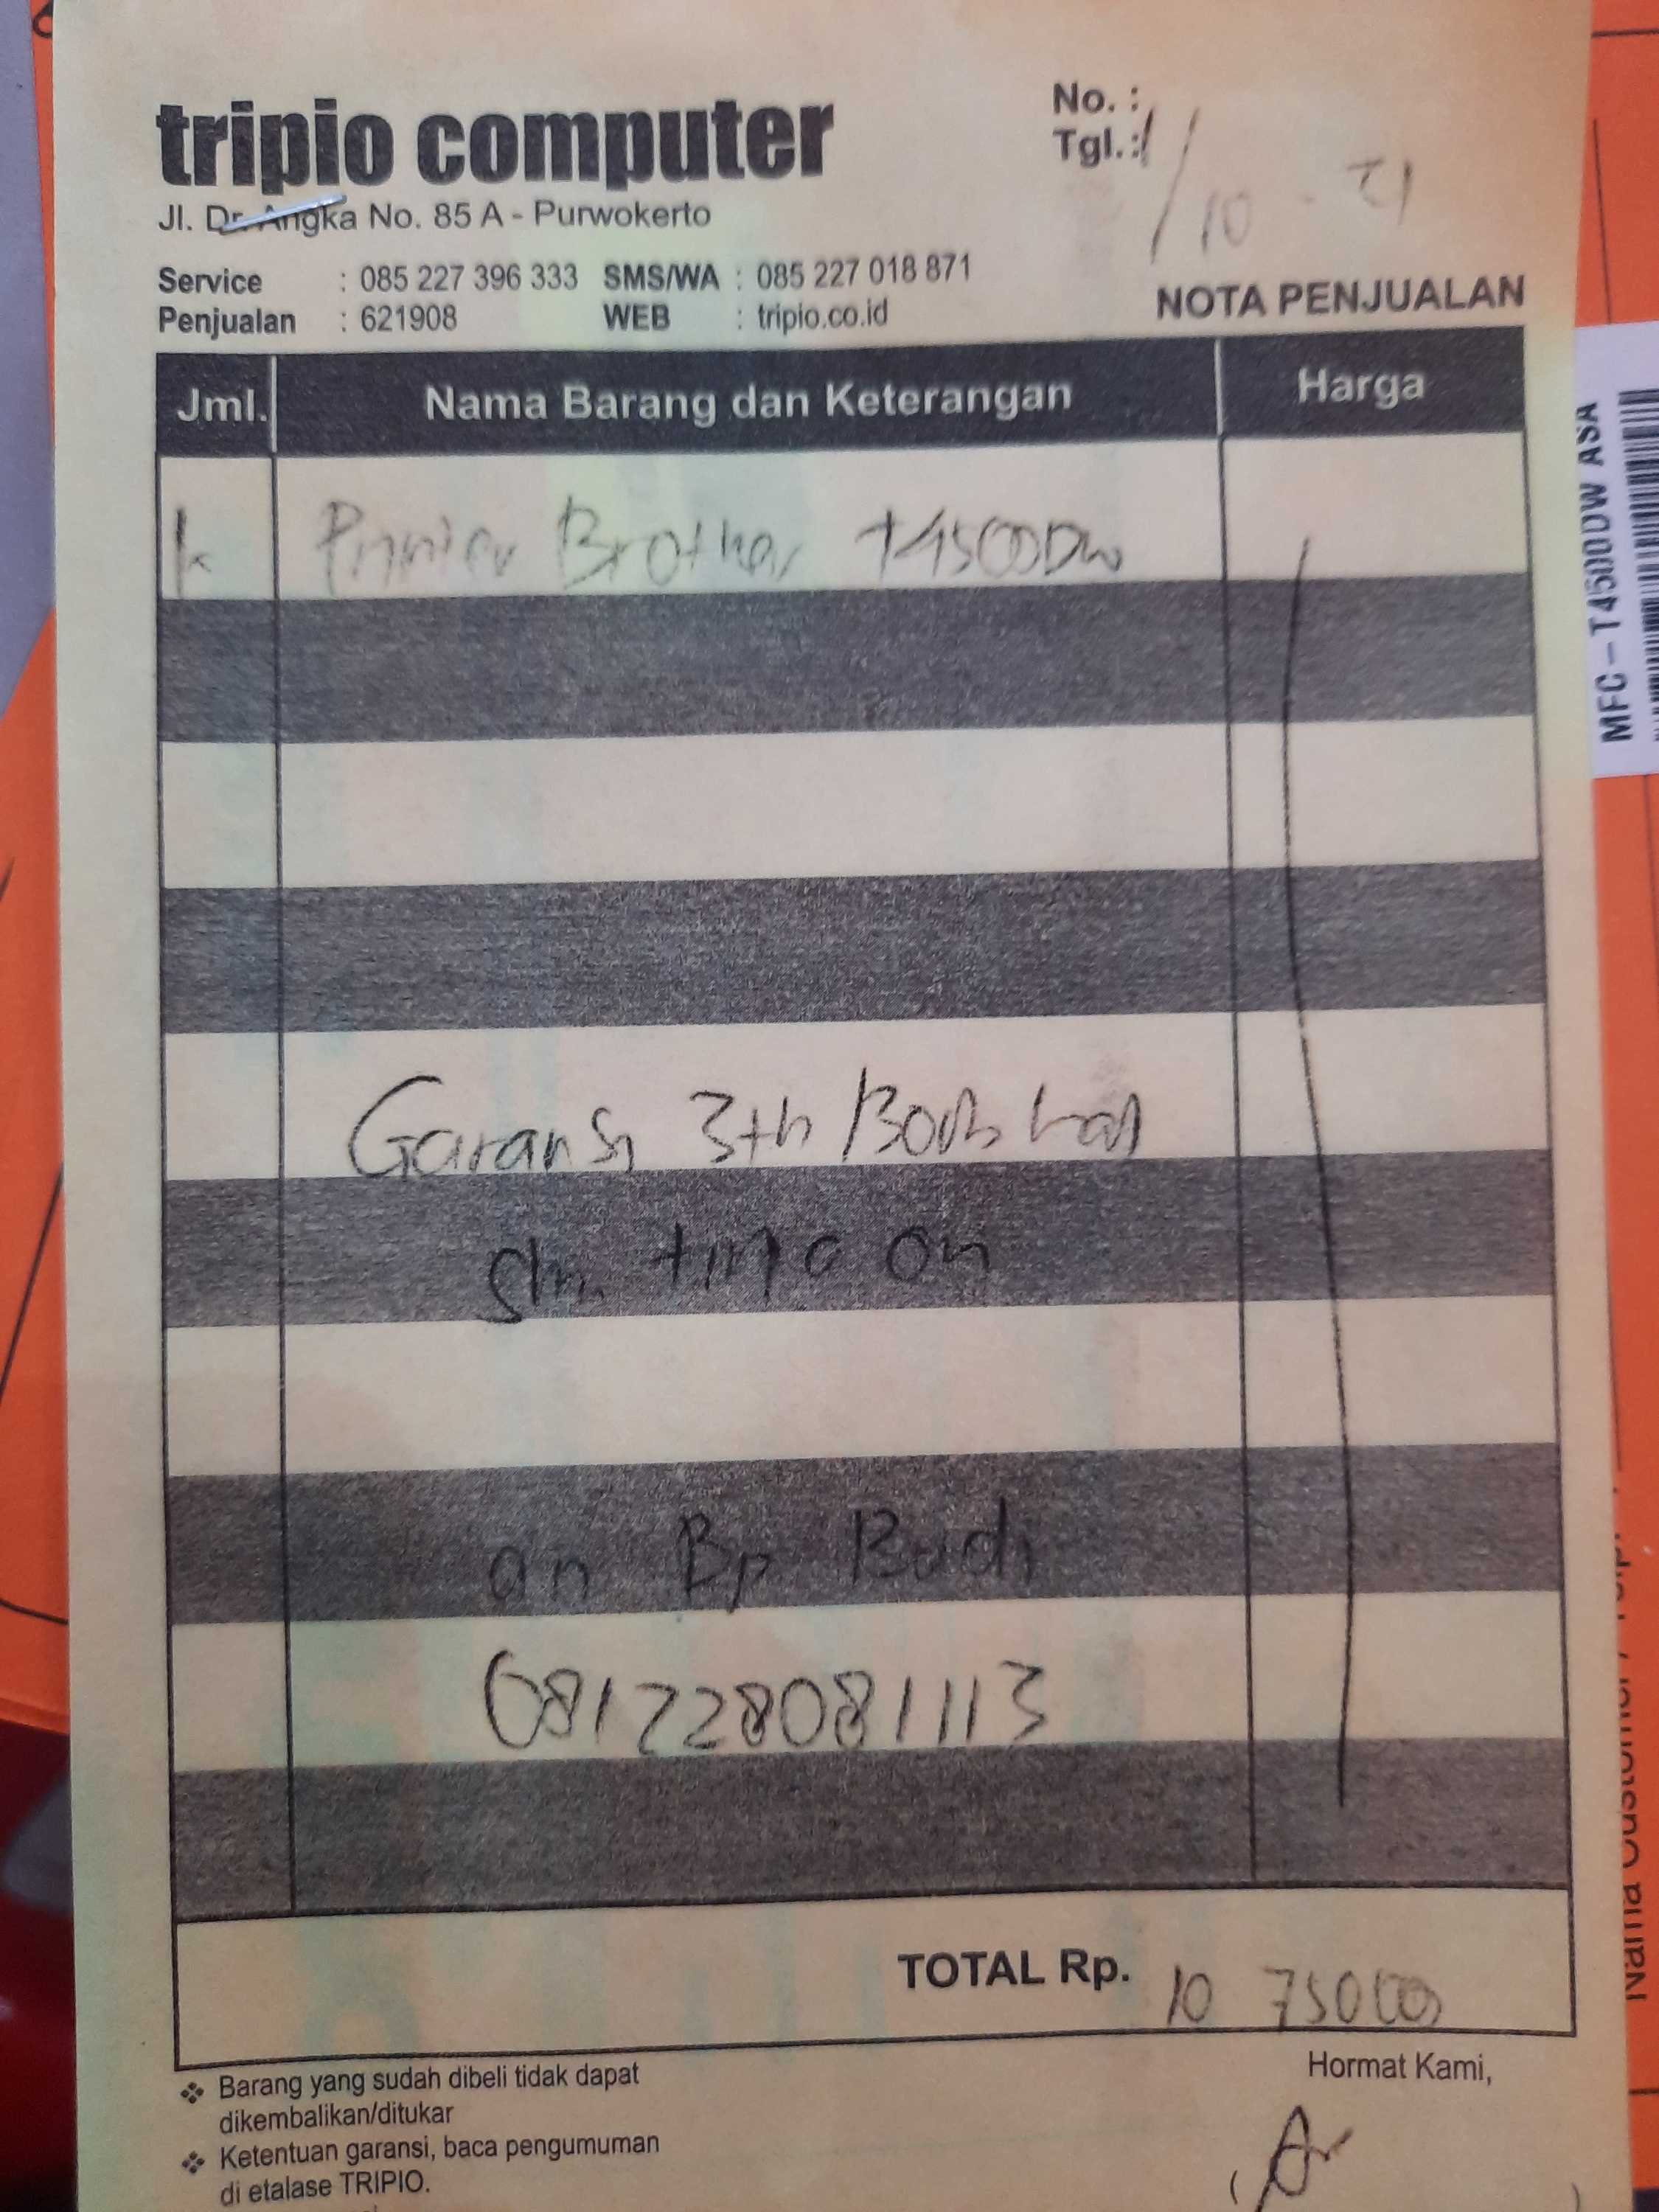 tripio computer
Jl. Dr. Angka No. 85 A - Purwokerto
Service : 085 227 396 333 SMS/WA : 085 227 018 871
Penjualan : 621908 WEB : tripio.co.id
No. :
Tgl. : 1/10 - 21
NOTA PENJUALAN
Jml. Nama Barang dan Keterangan Harga
Printer Brother T4500DW
Garansi 3th/30rb
on
an Bp Budi
081228081113
TOTAL Rp. 10 750000
Hormat Kami,
❖ Barang yang sudah dibeli tidak dapat
dikembalikan/ditukar
❖ Ketentuan garansi, baca pengumuman
di etalase TRIPIO.
MFC-T4500DW ASA
Nama Customer / Telp.